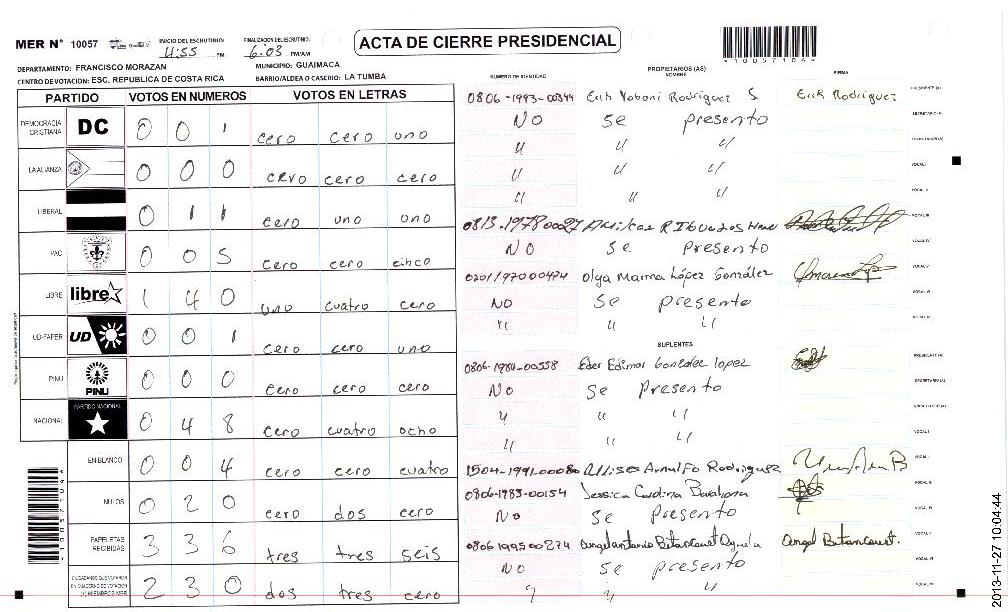 MER N° 10057 INICIO DEL ESCRUTINIO: 4:55 PM FINALIZACION DEL ESCRUTINIO: 6:03 PM/AM
ACTA DE CIERRE PRESIDENCIAL
DEPARTAMENTO: FRANCISCO MORAZAN MUNICIPIO: GUAIMACA
CENTRO DE VOTACION: ESC. REPUBLICA DE COSTA RICA BARRIO/ALDEA O CASERIO: LA TUMBA
PARTIDO VOTOS EN NUMEROS VOTOS EN LETRAS
DEMOCRACIA CRISTIANA DC 0 0 1 cero cero uno
LA ALIANZA 0 0 0 cero cero cero
LIBERAL 0 1 1 cero uno uno
PAC 0 0 5 cero cero cinco
LIBRE libre 1 4 0 uno cuatro cero
UD-FAPER UD 0 0 1 cero cero uno
PINU PINU 0 0 0 cero cero cero
NACIONAL PARTIDO NACIONAL 0 4 8 cero cuatro ocho
EN BLANCO 0 0 4 cero cero cuatro
NULOS 0 2 0 cero dos cero
PAPELETAS RECIBIDAS 3 3 6 tres tres seis
CIUDADANOS QUE VOTARON EN CUADERNO DE VOTACION (+) MIEMBROS MER 2 3 0 dos tres cero
PROPIETARIOS (AS)
NUMERO DE IDENTIDAD NOMBRE FIRMA
0806-1993-00344 Erik Yoboni Rodriguez S Erik Rodriguez PRESIDENTE (A)
NO se presento SECRETARIO (A)
" " "
" " " VOCAL I
" " " VOCAL II
0813-1978 VOCAL III
NO se presento VOCAL IV
0201197000474 Olga Marina López González VOCAL V
NO se presento VOCAL VI
" " "
SUPLENTES
0806-1984-00558 Eder Edimar Gonzalez lopez PRESIDENTE (A)
No se presento SECRETARIO (A)
" " "
" " " VOCAL I
1504-1991-00080 Ulises Arnulfo Rodriguez
0806-1983-00154 Jessica Carolina Barahona
No se presento
0806199500274 Angel Antonio Betancourt Angel Betancourt.
NO se presento
" "
*1005704*
*1005704*
2013-11-27 10:04:44